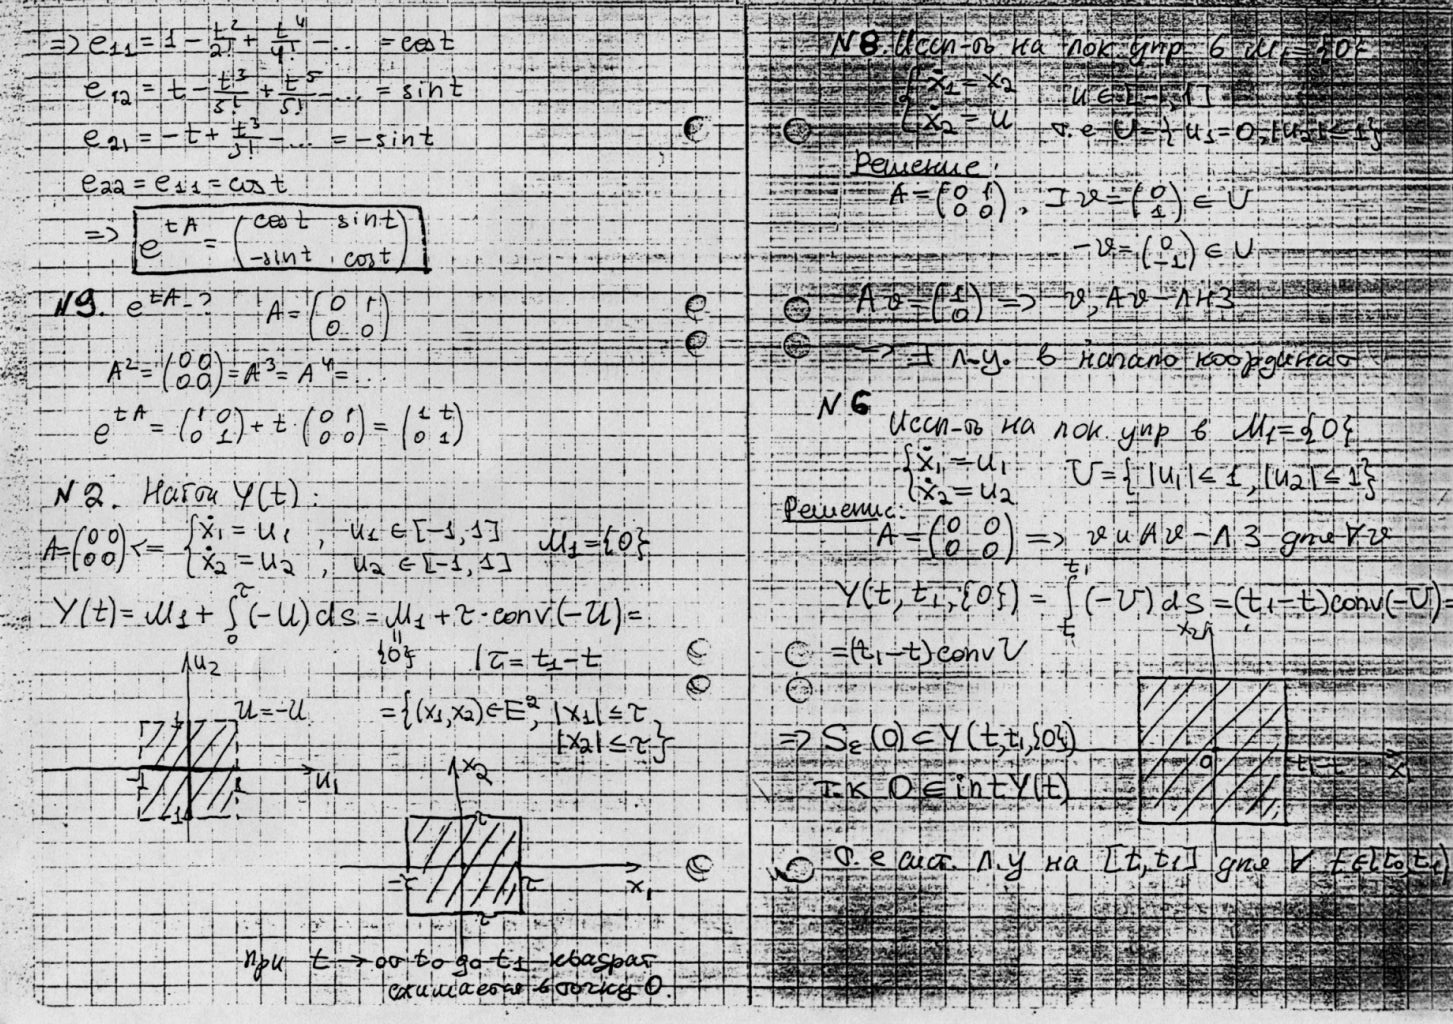 => e₁₁ = 1 - t²/2! + t⁴/4! - ... = cos t
e₁₂ = t - t³/3! + t⁵/5! - ... = sin t
e₂₁ = -t + t³/3! - ... = -sin t
e₂₂ = e₁₁ = cos t
=> e^{tA} = (cos t sin t; -sin t cos t)
N9. e^{tA} - ? A = (0 1; 0 0)
A² = (0 0; 0 0) = A³ = A⁴ = ...
e^{tA} = (1 0; 0 1) + t · (0 1; 0 0) = (1 t; 0 1)
N2. Найти Y(t):
A = (0 0; 0 0) <= { ẋ₁ = u₁, u₁ ∈ [-1,1] M₁ = {0}
ẋ₂ = u₂, u₂ ∈ [-1,1]
Y(t) = M₁ + ∫₀^τ (-U) ds = M₁ + τ · conv(-U) =
{0} | τ = t₁ - t
u₂
U = -U = {(x₁,x₂) ∈ E², |x₁| ≤ τ
|x₂| ≤ τ}
1
-1 1 u₁
-1
x₂
τ
-τ τ x₁
-τ
при t → от t₀ до t₁ квадрат
сжимается в точку 0.
N8. Иссл-ть на лок. упр в M₁ = {0}
{ ẋ₁ = x₂ u ∈ [-1,1]
ẋ₂ = u т.е U = {u₁ = 0, |u₂| ≤ 1}
Решение:
A = (0 1; 0 0), ∃ v = (0; 1) ∈ U
-v = (0; -1) ∈ U
A v = (1; 0) => v, Av - ЛНЗ
=> ∃ л.у. в начало координат
N6
Иссл-ть на лок. упр в M₁ = {0}
{ ẋ₁ = u₁ U = {|u₁| ≤ 1, |u₂| ≤ 1}
ẋ₂ = u₂
Решение:
A = (0 0; 0 0) => v и Av - ЛЗ для ∀ v
Y(t, t₁, {0}) = ∫_t^{t₁} (-U) ds = (t₁-t) conv(-U) =
= (t₁-t) conv U
x₂
=> S_ε(0) ⊂ Y(t, t₁, {0})
0 t₁-t x₁
т.к 0 ∈ int Y(t)
т.е сист. л.у на [t, t₁] для ∀ t ∈ [t₀, t₁)